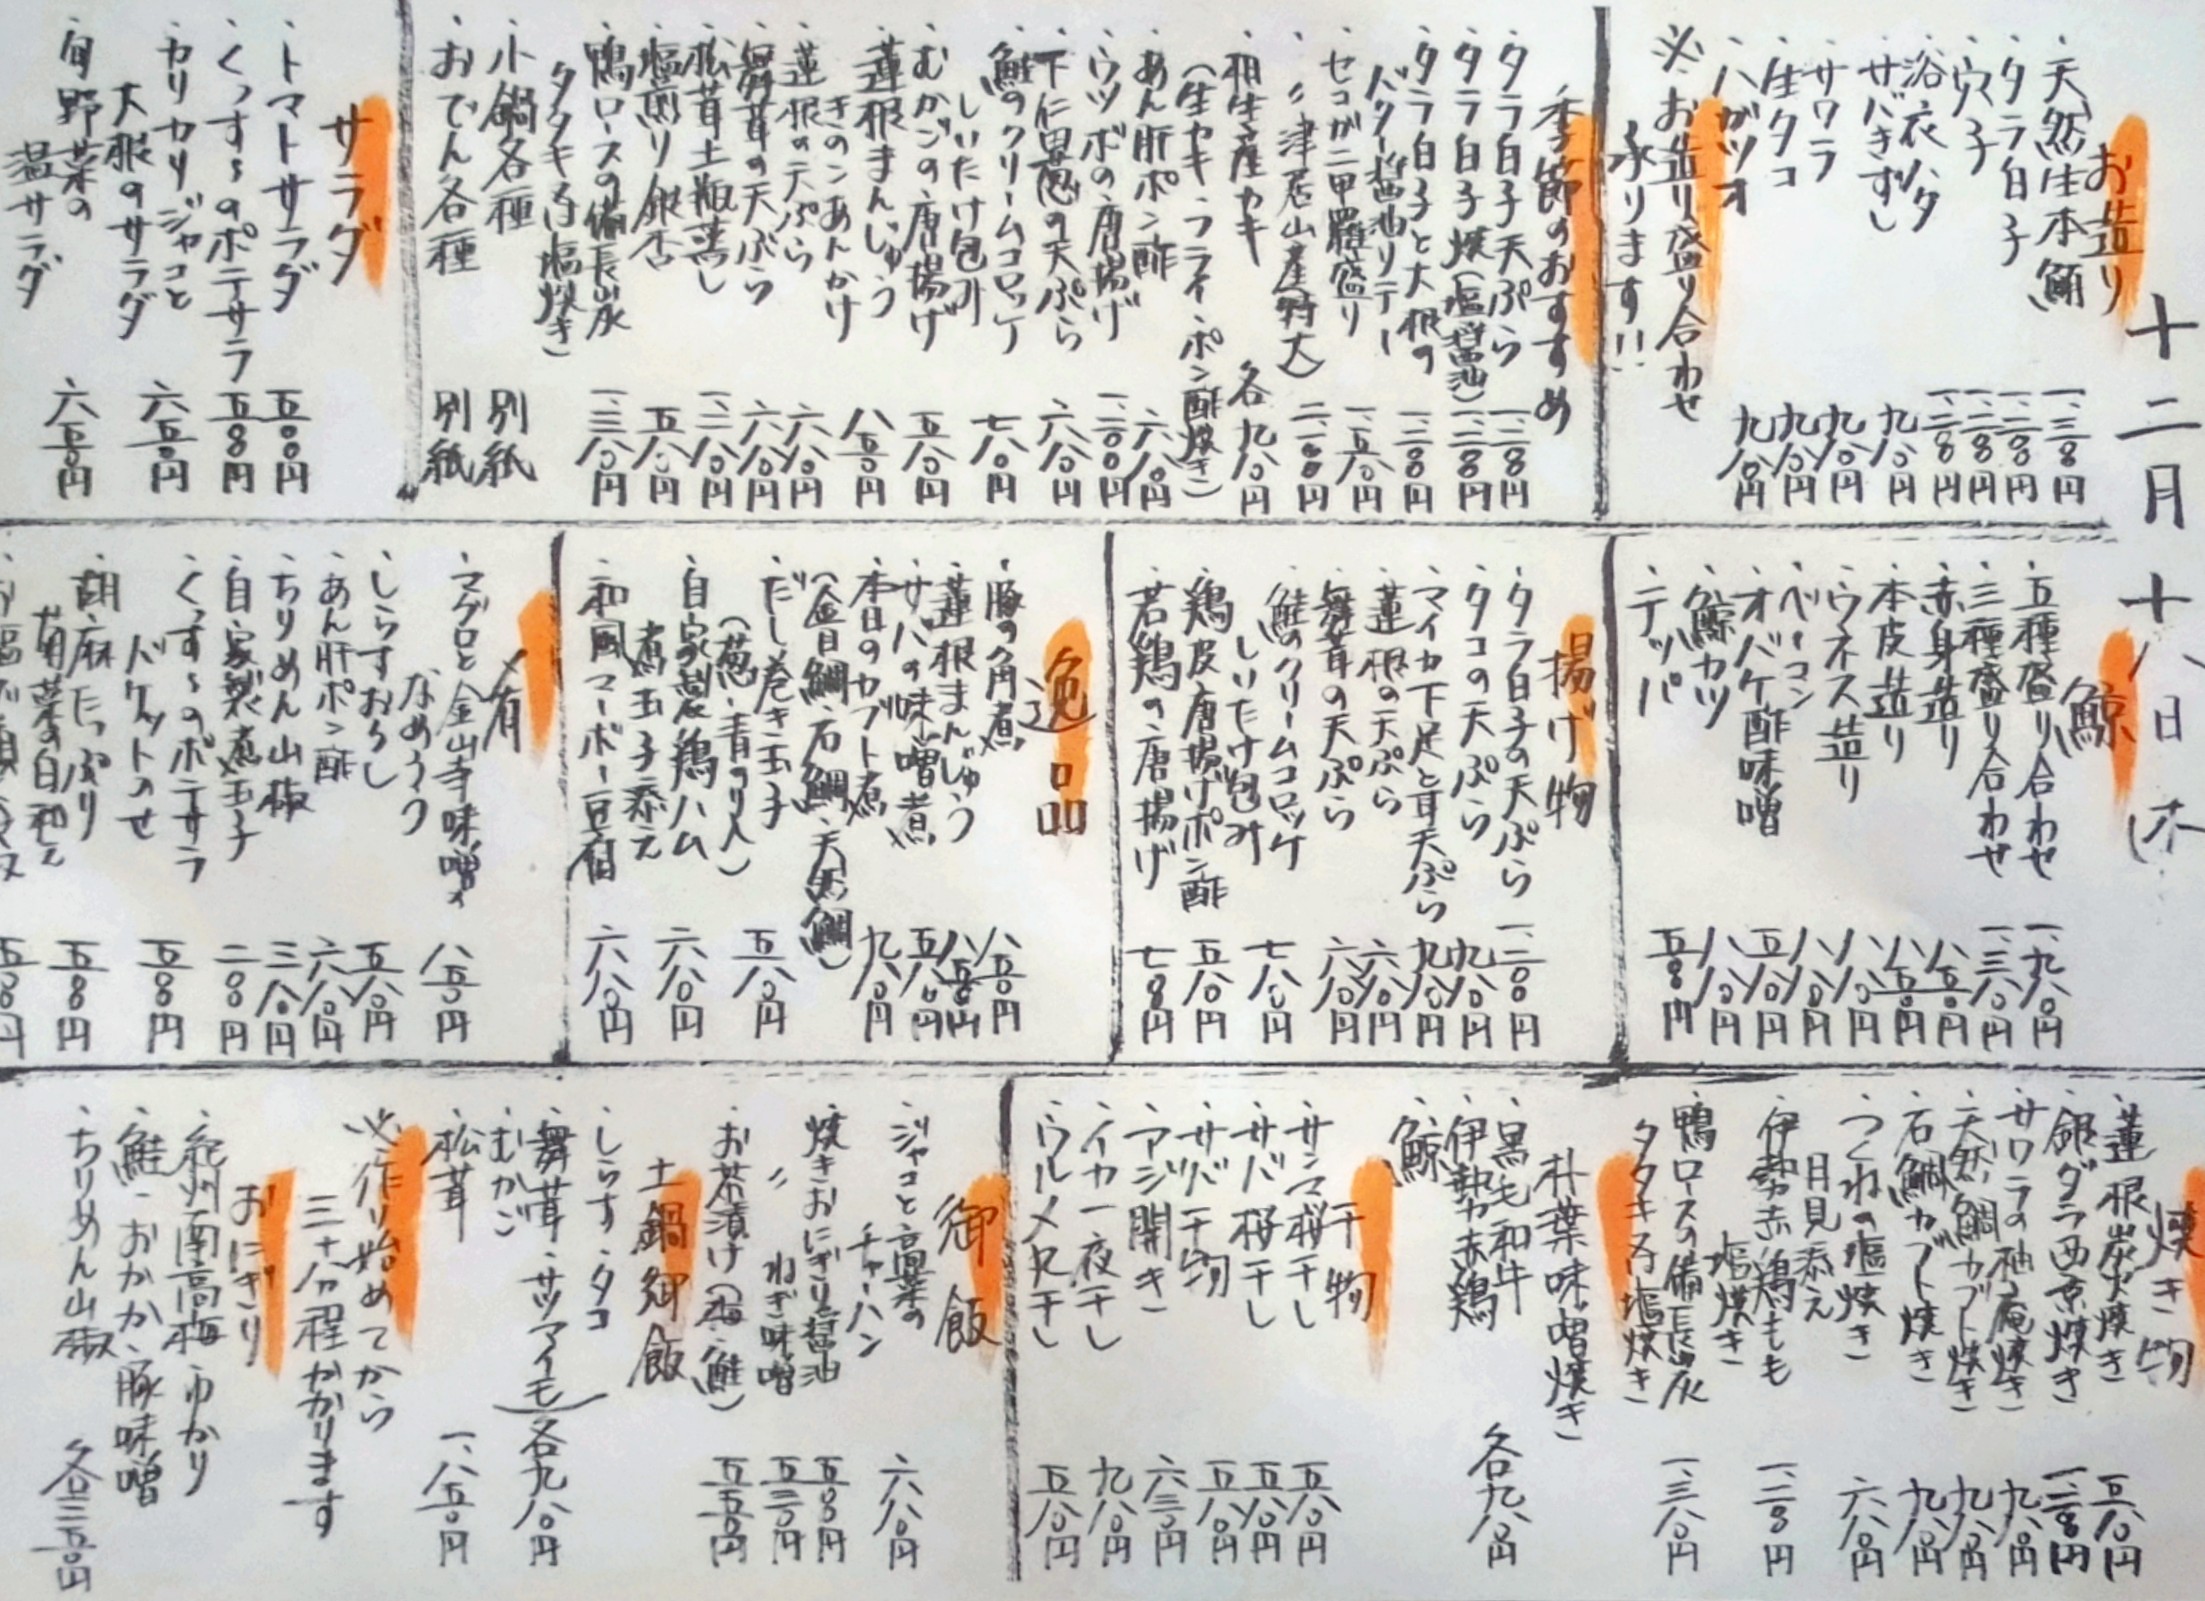 十二月十八日(木
お造り
・天然生本鮪 一、三八〇円
・タラ白子 一、二八〇円
・穴子 一、二八〇円
・浴衣ハタ 一、二八〇円
・サバきずし 九八〇円
・サワラ 九八〇円
・生タコ 九八〇円
・ハガツオ 九八〇円
※お造り盛り合わせ
承ります!!
季節のおすすめ
・タラ白子天ぷら 一、二八〇円
・タラ白子焼(塩・醤油) 一、二八〇円
・タラ白子と大根の
バター醤油ソテー 一、三八〇円
・セコガニ甲羅盛り 一、五八〇円
・〃(津居山産特大) 二、二〇〇円
・相生産カキ
(生ガキ・フライ・ポン酢・焼き) 各九八〇円
・あん肝ポン酢 六八〇円
・ウツボの唐揚げ 一、二〇〇円
・下仁田葱の天ぷら 六八〇円
・鮭のクリームコロッケ
しいたけ包み 七八〇円
・むかごの唐揚げ 五八〇円
・蓮根まんじゅう
きのこあんかけ 八五〇円
・蓮根の天ぷら 六八〇円
・舞茸の天ぷら 六八〇円
・松茸土瓶蒸し 一、二八〇円
・塩煎り銀杏 五八〇円
・鴨ロースの備長炭
タタキ風塩焼き 一、三八〇円
・小鍋各種 別紙
・おでん各種 別紙
サラダ
・トマトサラダ 五〇〇円
・くっすぅのポテサラ 五〇〇円
・カリカリジャコと
大根のサラダ 六五〇円
・旬野菜の
温サラダ 六五〇円
鯨
・五種盛り合わせ 一、九八〇円
・三種盛り合わせ 一、三八〇円
・赤身造り 八五〇円
・本皮造り 八五〇円
・ウネス造り 八八〇円
・ベーコン 八八〇円
・オバケ酢味噌 五八〇円
・鯨カツ 八八〇円
・テッパ 五八〇円
揚げ物
・タラ白子の天ぷら 一、二八〇円
・タコの天ぷら 九八〇円
・マイカ下足と耳天ぷら 九八〇円
・蓮根の天ぷら 六八〇円
・舞茸の天ぷら 六八〇円
・鮭のクリームコロッケ
しいたけ包み 七八〇円
・鶏皮唐揚げポン酢 五八〇円
・若鶏の唐揚げ 七五〇円
逸品
・豚の角煮 八五〇円
・蓮根まんじゅう 八五〇円
・サバの味噌煮 五八〇円
・本日のカブト煮
(金目鯛・石鯛・天然鯛) 九八〇円
・だし巻き玉子
(葱・青のり入) 五八〇円
・自家製鶏ハム
煮玉子添え 六八〇円
・和風マーボー豆腐 六八〇円
肴
・マグロと金山寺味噌
なめろう 八五〇円
・しらすおろし 五八〇円
・あん肝ポン酢 六八〇円
・ちりめん山椒 三八〇円
・自家製煮玉子 二〇〇円
・くっすぅのポテサラ
バケットのせ 五五〇円
・胡麻たっぷり
菊菜の白和え 五五〇円
焼き物
・蓮根炭火焼き 五八〇円
・銀ダラ西京焼き 一、二八〇円
・サワラの柚庵焼き 九八〇円
・天然鯛カブト焼き 九八〇円
・石鯛カブト焼き 九八〇円
・つくねの塩焼き
月見添え 六八〇円
・伊勢赤鶏もも
塩焼き 一、二八〇円
・鴨ロースの備長炭
タタキ風塩焼き 一、三八〇円
朴葉味噌焼き
・黒毛和牛
・伊勢赤鶏
・鯨 各九八〇円
干物
・サンマ桜干し 五八〇円
・サバ桜干し 五八〇円
・サバ干物 五八〇円
・アジ開き 六三〇円
・イカ一夜干し 九八〇円
・ウルメ丸干し 五八〇円
御飯
・ジャコと高菜の
チャーハン 六八〇円
・焼きおにぎり醤油 五〇〇円
・〃 ねぎ味噌 五三〇円
・お茶漬け(梅・鮭) 五五〇円
土鍋御飯
・しらす・タコ
・舞茸・サツマイモ
・むかご 各九八〇円
・松茸 一、八五〇円
※作り始めてから
三十分程かかります
おにぎり
・紀州南高梅・ゆかり
・鮭・おかか・豚味噌
・ちりめん山椒 各三五〇円